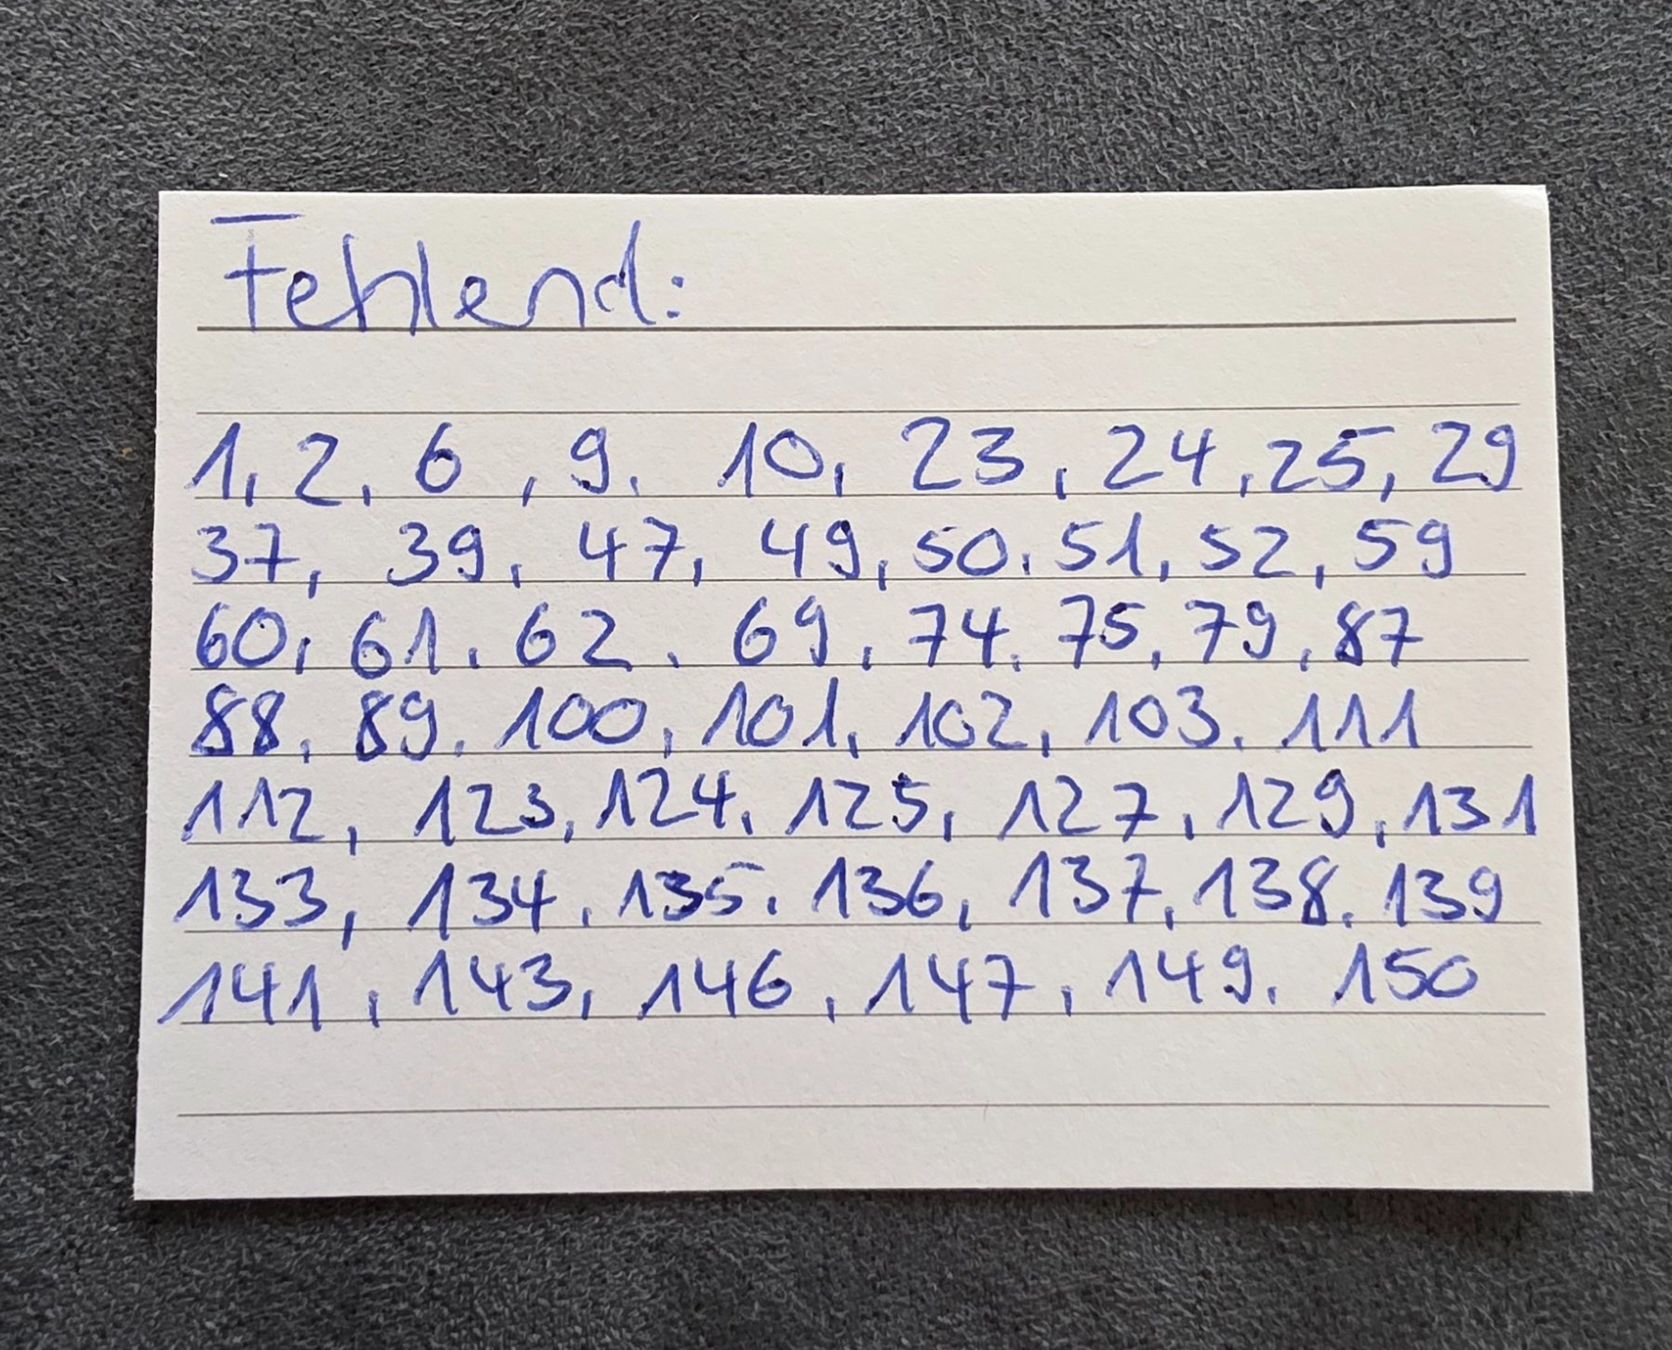 Fehlend:
1, 2, 6, 9, 10, 23, 24, 25, 29
37, 39, 47, 49, 50, 51, 52, 59
60, 61, 62, 69, 74, 75, 79, 87
88, 89, 100, 101, 102, 103, 111
112, 123, 124, 125, 127, 129, 131
133, 134, 135, 136, 137, 138, 139
141, 143, 146, 147, 149, 150